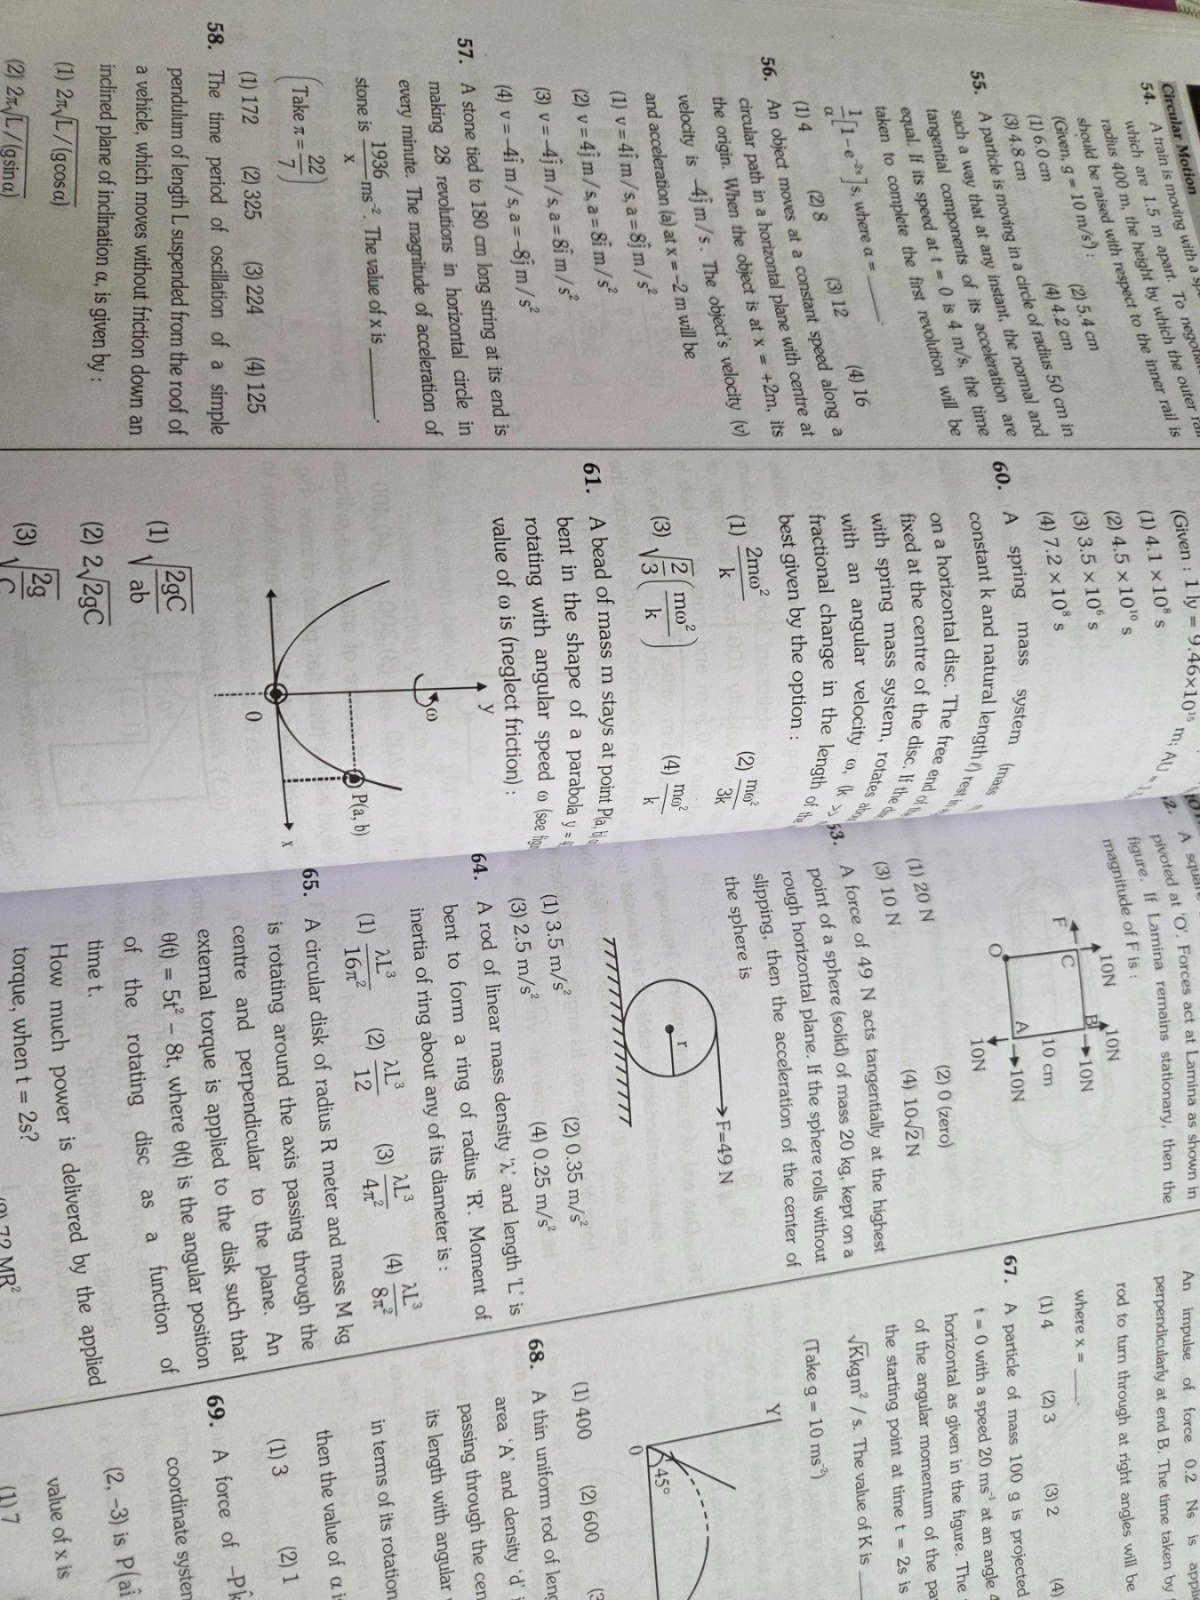 Circular Motion
54. A train is moving with a
which are 1.5 m apart. To
radius 400 m, the height by which the outer
should be raised with respect to the inner rail is
(Given, g = 10 m/s²) :
(1) 6.0 cm (2) 5.4 cm
(3) 4.8 cm (4) 4.2 cm
55. A particle is moving in a circle of radius 50 cm in
such a way that at any instant, the normal and
tangential components of its acceleration are
equal. If its speed at t = 0 is 4 m/s, the time
taken to complete the first revolution will be
1/α [1 − e⁻²ᵑ] s, where α = ______.
(1) 4 (2) 8 (3) 12 (4) 16
56. An object moves at a constant speed along a
circular path in a horizontal plane with centre at
the origin. When the object is at x = +2m, its
velocity is −4ĵ m/s. The object's velocity (v)
and acceleration (a) at x = −2 m will be
(1) v = 4î m/s, a = 8ĵ m/s²
(2) v = 4ĵ m/s, a = 8î m/s²
(3) v = −4ĵ m/s, a = 8î m/s²
(4) v = −4î m/s, a = −8ĵ m/s²
57. A stone tied to 180 cm long string at its end is
making 28 revolutions in horizontal circle in
every minute. The magnitude of acceleration of
stone is 1936/x ms⁻². The value of x is ______.
(Take π = 22/7)
(1) 172 (2) 325 (3) 224 (4) 125
58. The time period of oscillation of a simple
pendulum of length L suspended from the roof of
a vehicle, which moves without friction down an
inclined plane of inclination α, is given by :
(1) 2π√L/(gcosα)
(2) 2π√L/(gsinα)
(Given : 1 ly = 9.46×10¹⁵ m;
(1) 4.1 × 10⁸ s
(2) 4.5 × 10¹⁰ s
(3) 3.5 × 10⁶ s
(4) 7.2 × 10⁸ s
60. A spring mass system (mass
constant k and natural length
on a horizontal disc. The free end of
fixed at the centre of the disc. If the
with spring mass system, rotates
with an angular velocity ω, (k
fractional change in the length of
best given by the option :
(1) 2mω²/k (2) mω²/3k
(3) √2/3 (mω²/k) (4) mω²/k
61. A bead of mass m stays at point P(a, b)
bent in the shape of a parabola y =
rotating with angular speed ω (see
value of ω is (neglect friction) :
y
ω
P(a, b)
0
x
(1) √2gC/ab
(2) 2√2gC
(3) √2g/C
A square
pivoted at 'O'. Forces act at Lamina as shown in
figure. If Lamina remains stationary, then the
magnitude of F is :
10N
10N
F
C
B
10N
10 cm
O
A
10N
10N
(1) 20 N (2) 0 (zero)
(3) 10 N (4) 10√2 N
63. A force of 49 N acts tangentially at the highest
point of a sphere (solid) of mass 20 kg, kept on a
rough horizontal plane. If the sphere rolls without
slipping, then the acceleration of the center of
the sphere is
F=49 N
r
(1) 3.5 m/s² (2) 0.35 m/s²
(3) 2.5 m/s² (4) 0.25 m/s²
64. A rod of linear mass density 'λ' and length 'L' is
bent to form a ring of radius 'R'. Moment of
inertia of ring about any of its diameter is :
(1) λL³/16π² (2) λL³/12 (3) λL³/4π² (4) λL³/8π²
65. A circular disk of radius R meter and mass M kg
is rotating around the axis passing through the
centre and perpendicular to the plane. An
external torque is applied to the disk such that
θ(t) = 5t² − 8t, where θ(t) is the angular position
of the rotating disc as a function of
time t.
How much power is delivered by the applied
torque, when t = 2s?
72 MR²
An impulse of force 0.2 Ns is
perpendicularly at end B. The time taken by
rod to turn through at right angles will be
where x = ____.
(1) 4 (2) 3 (3) 2 (4)
67. A particle of mass 100 g is projected
t = 0 with a speed 20 ms⁻¹ at an angle
horizontal as given in the figure. The
of the angular momentum of the
the starting point at time t = 2s is
√K kgm²/s. The value of K is
(Take g = 10 ms⁻²)
Y
0
45°
(1) 400 (2) 600
68. A thin uniform rod of
area 'A' and density 'd'
passing through the
its length with angular
in terms of its rotation
then the value of α
(1) 3 (2) 1
69. A force of
coordinate
(2, −3) is
value of x is
(1) 7